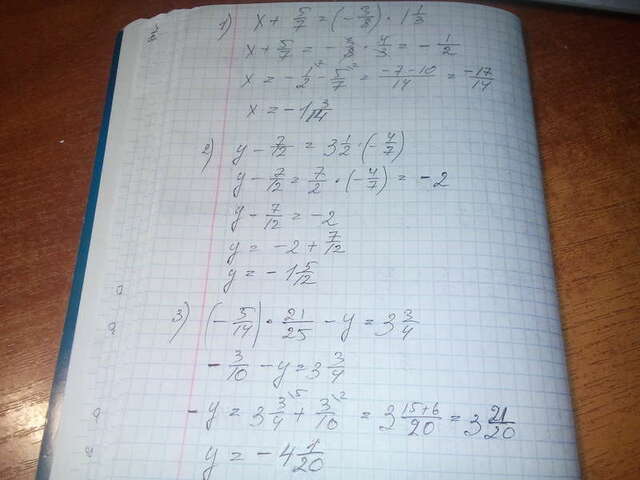 1) x + 5/7 = (-3/8) · 1 1/3
x + 5/7 = -3/8 · 4/3 = -1/2
x = -1/2 - 5/7 = (-7-10)/14 = -17/14
x = -1 3/14
2) y - 7/12 = 3 1/2 · (-4/7)
y - 7/12 = 7/2 · (-4/7) = -2
y - 7/12 = -2
y = -2 + 7/12
y = -1 5/12
3) (-5/14) · 21/25 - y = 3 3/4
-3/10 - y = 3 3/4
-y = 3 3/4 \5 + 3/10 \2 = 3 (15+6)/20 = 3 21/20
y = -4 1/20